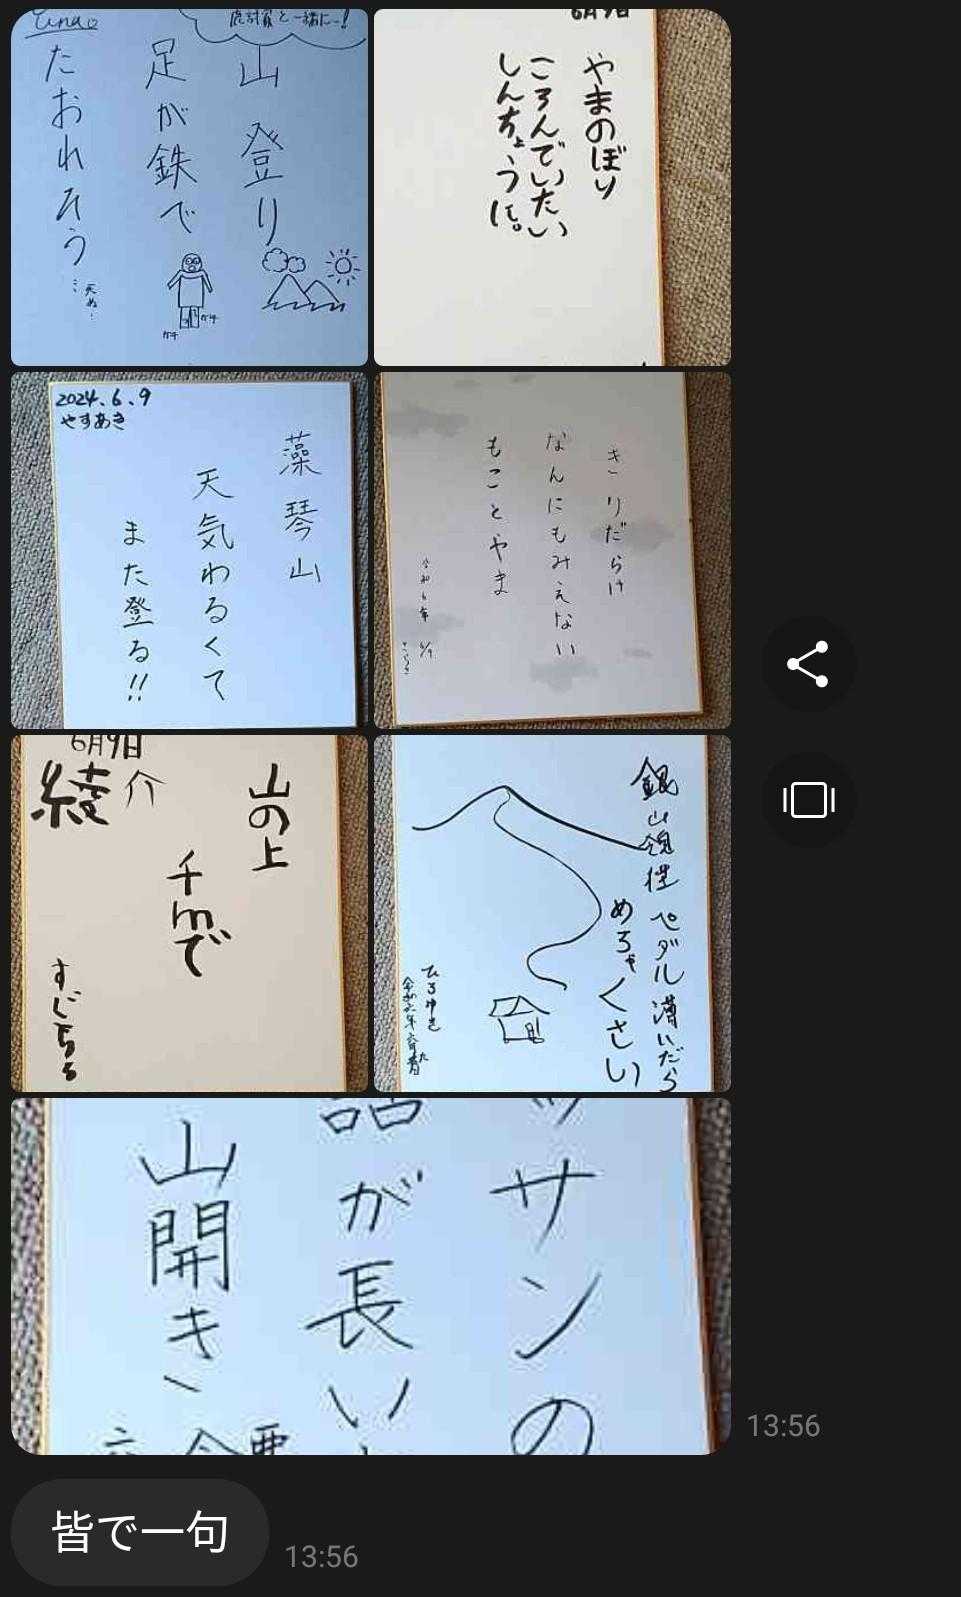 Tina♡
虎計賀と一緒にー!
山登り
足が鉄で
たおれそう
ガチ
ガチ
6月9日
やまのぼり
ころんでいたい
しんちょうに。
2024.6.9
やすあき
藻琴山
天気わるくて
また登る!!
きりだらけ
なんにもみえない
もことやま
令和6年 6/9
6月9日
綾介
山の上
千mで
すじ
銀山
ペダル漕いだら
めちゃくさい
ひろゆき
ッサンの
話が長い
山開き
13:56
皆で一句
13:56